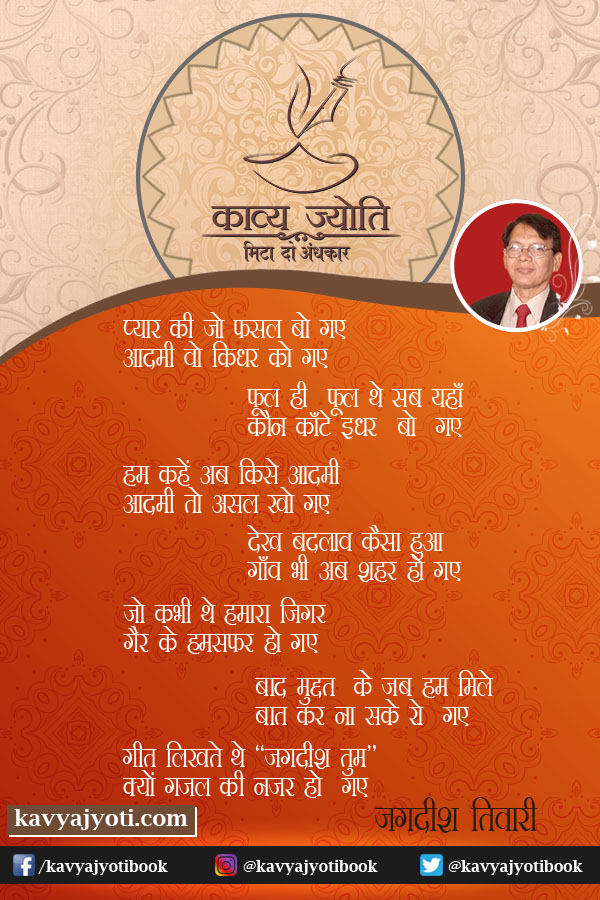 काव्य ज्योति
मिटा दो अंधकार
प्यार की जो फसल बो गए
आदमी वो किधर को गए
फूल ही फूल थे सब यहाँ
कौन काँटे इधर बो गए
हम कहें अब किसे आदमी
आदमी तो असल खो गए
देख बदलाव कैसा हुआ
गाँव भी अब शहर हो गए
जो कभी थे हमारा जिगर
गैर के हमसफर हो गए
बाद मुद्दत के जब हम मिले
बात कर ना सके रो गए
गीत लिखते थे “जगदीश तुम”
क्यों गजल की नजर हो गए
जगदीश तिवारी
kavyajyoti.com
/kavyajyotibook @kavyajyotibook @kavyajyotibook